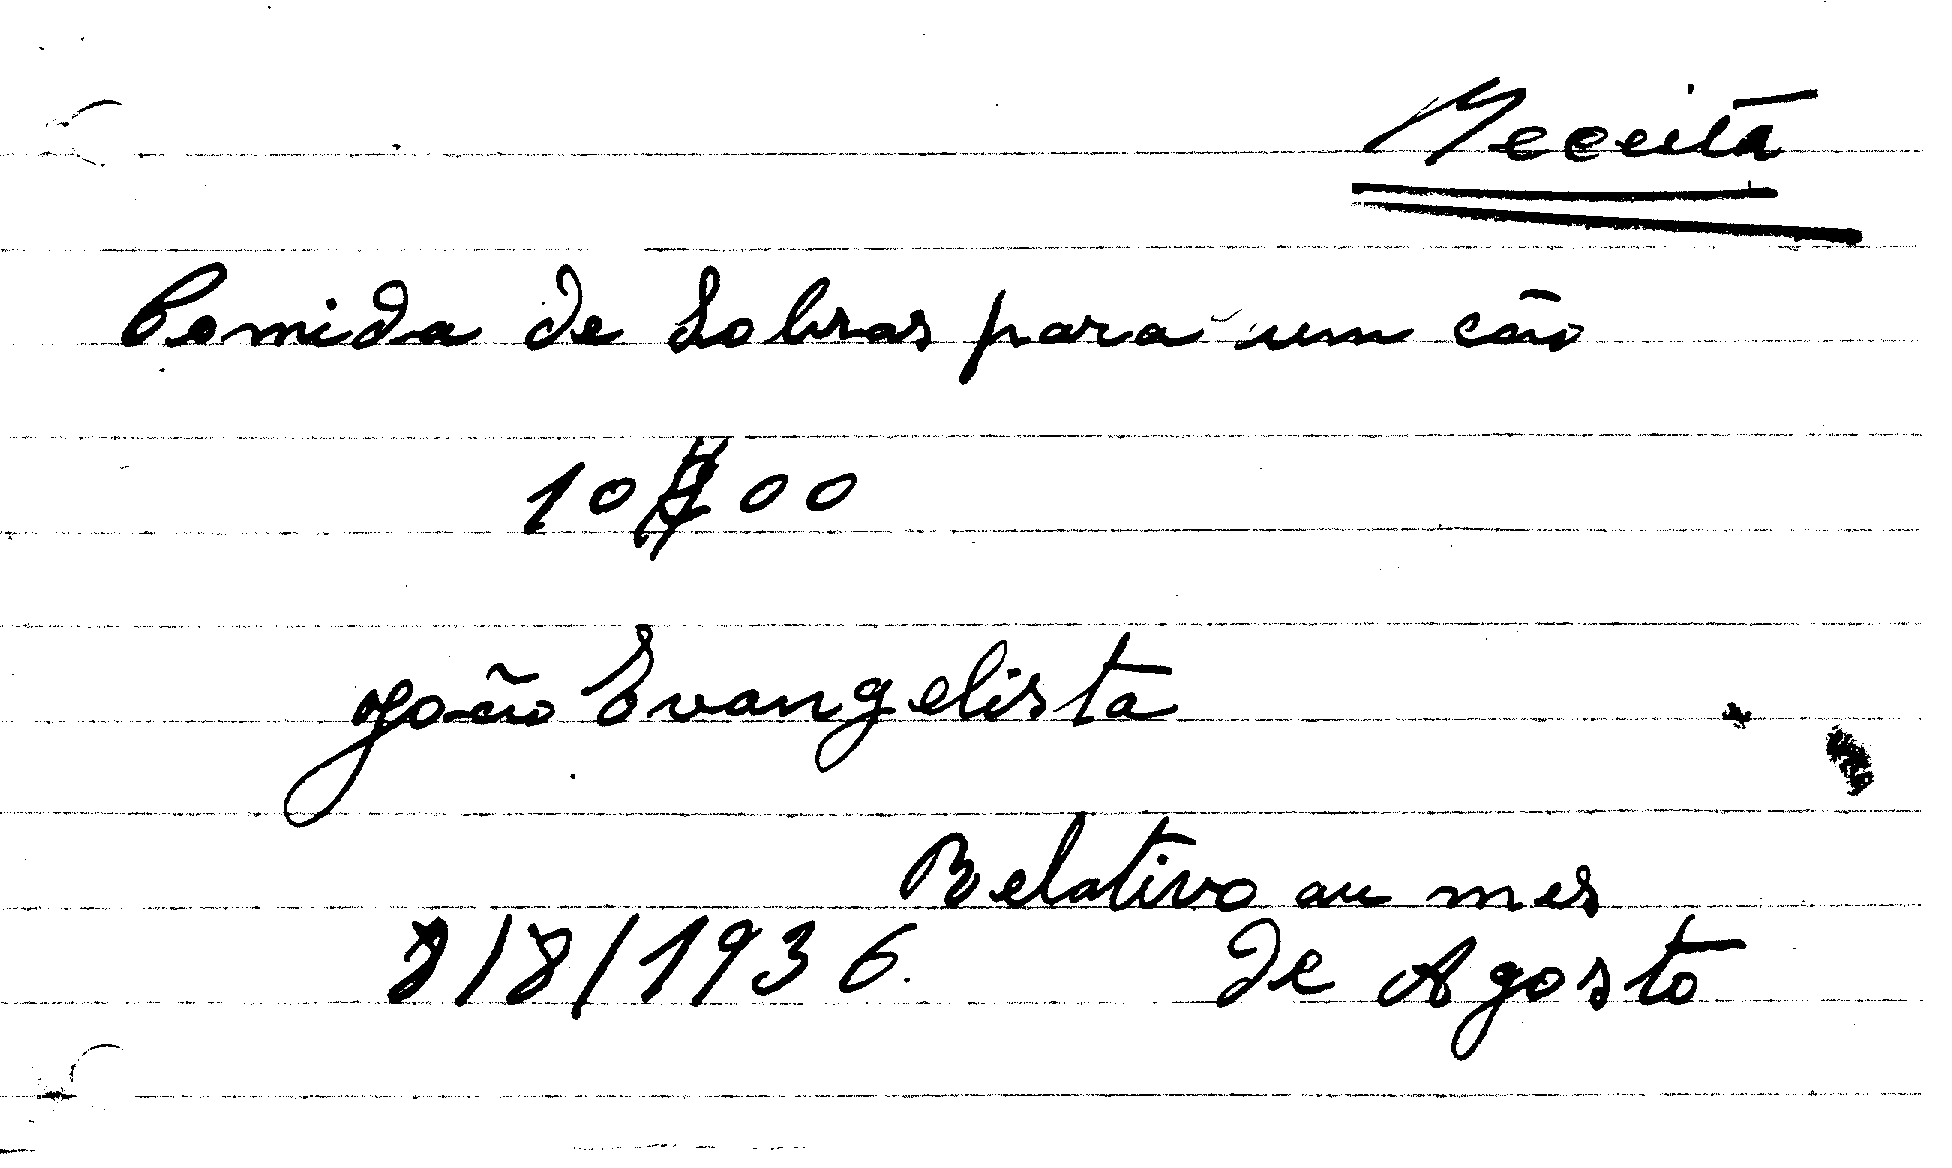 Receita
Comida de Sobras para um cão
10$00
João Evangelista
Relativo au mes
8/8/1936. de Agosto